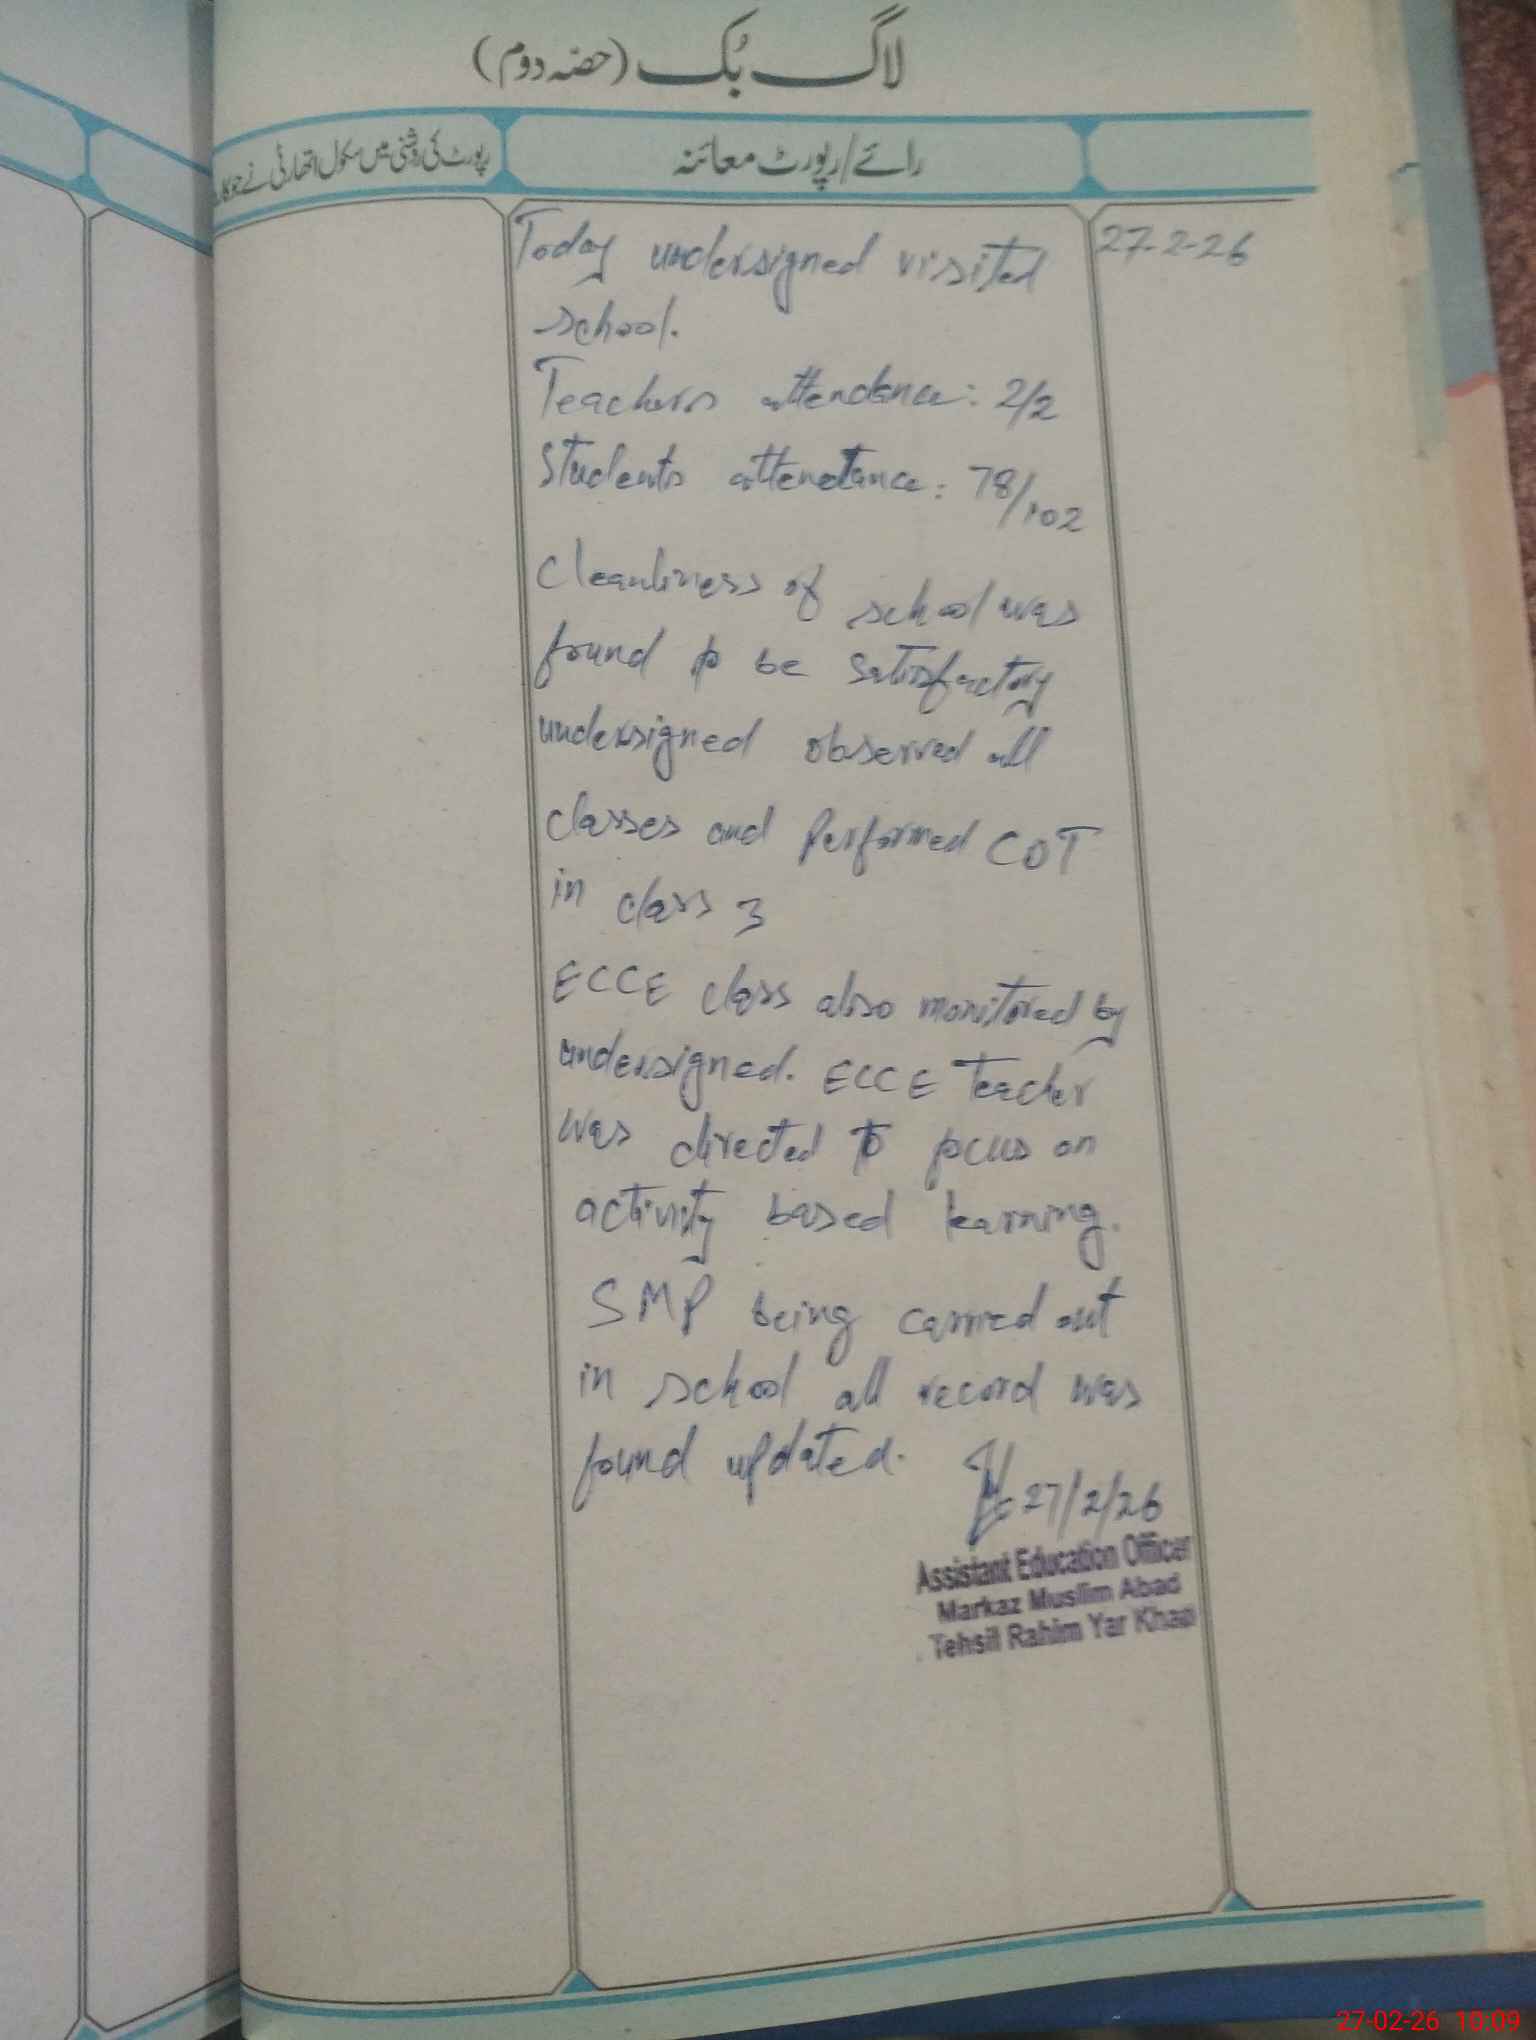 لاگ بُک (حصّہ دوم)
رائے/رپورٹ معائنہ
رپورٹ کی روشنی میں سکول اتھارٹی نے جو
27-2-26
Today undersigned visited
school.
Teachers attendance: 2/2
Students attendance: 78/102
Cleanliness of school was
found to be satisfactory
undersigned observed all
classes and Performed COT
in class 3
ECCE class also monitored by
undersigned. ECCE Teacher
was directed to focus on
activity based learning.
SMP being carried out
in school all record was
found updated.
27/2/26
Assistant Education Officer
Markaz Muslim Abad
Tehsil Rahim Yar Khan
27-02-26 10:09